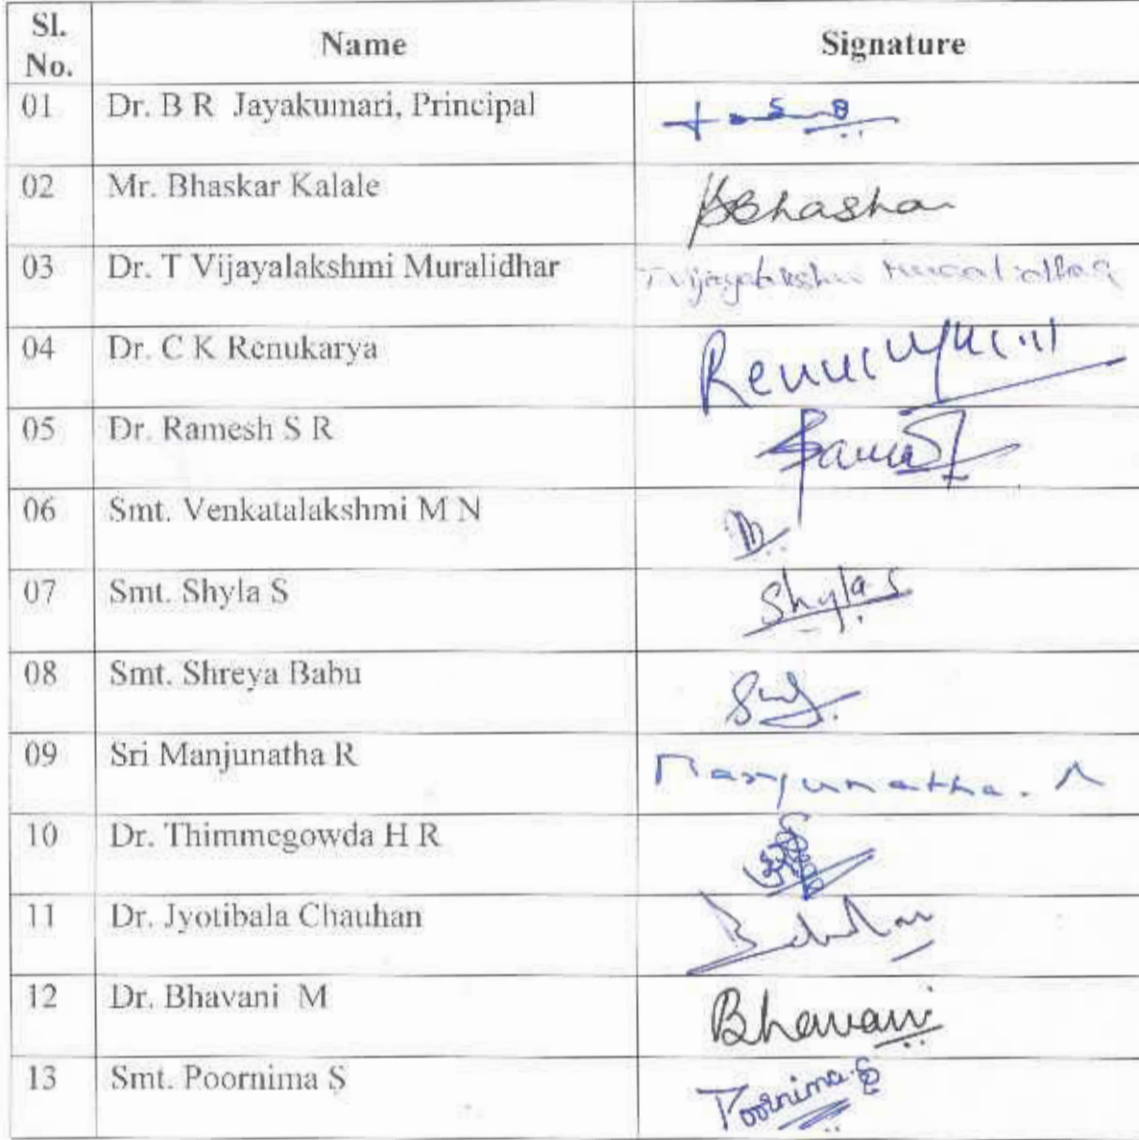 Sl. No. Name Signature
01 Dr. B R Jayakumari, Principal
02 Mr. Bhaskar Kalale
03 Dr. T Vijayalakshmi Muralidhar
04 Dr. C K Renukarya
05 Dr. Ramesh S R
06 Smt. Venkatalakshmi M N
07 Smt. Shyla S Shyla S
08 Smt. Shreya Babu
09 Sri Manjunatha R Manjunatha. R
10 Dr. Thimmegowda H R
11 Dr. Jyotibala Chauhan
12 Dr. Bhavani M Bhavani
13 Smt. Poornima S Poornima. S